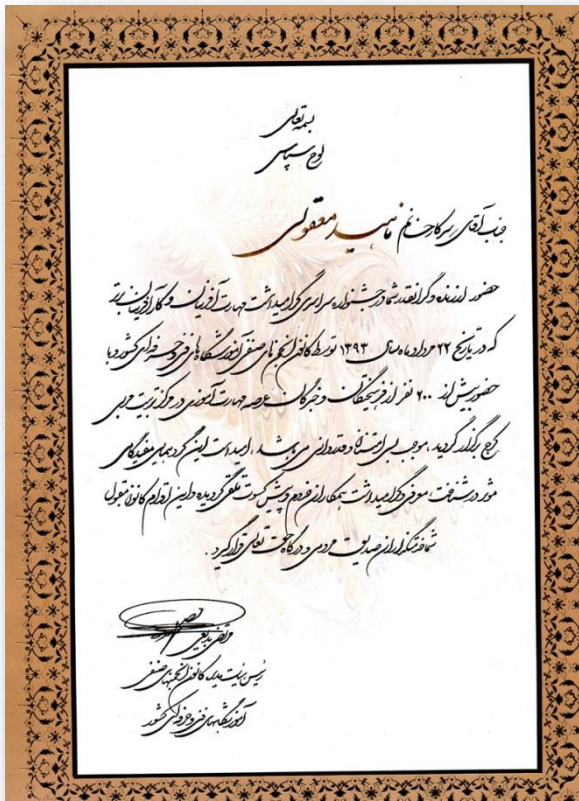 بسمه تعالی
لوح سپاس
جناب آقای / سرکار خانم ناهید معقولی
حضور ارزنده و گرانقدر شما در جشنواره سراسری گرامیداشت مهارت آفرینان و کارآفرینان برتر
که در تاریخ ۲۲ مرداد ماه سال ۱۳۹۳ توسط کانون انجمن های صنفی آموزشگاه های فنی و حرفه ای کشور و با
حضور بیش از ۲۰۰ نفر از فرهیختگان و خبرگان عرصه مهارت آموزی در مرکز تربیت مربی
کرج برگزار گردید، موجب بسی امتنان و قدردانی می باشد، امید است این گردهمایی مفید گامی
موثر در شناخت، معرفی و گرامیداشت همکاران خدوم و پیش کسوت تلقی گردیده و این اقدام کانون مقبول
شما خدمتگزاران صدیق مردمی و درگاه حق تعالی قرار گیرد.
رئیس هیئت مدیره کانون انجمنهای صنفی
آموزشگاههای فنی و حرفه ای کشور